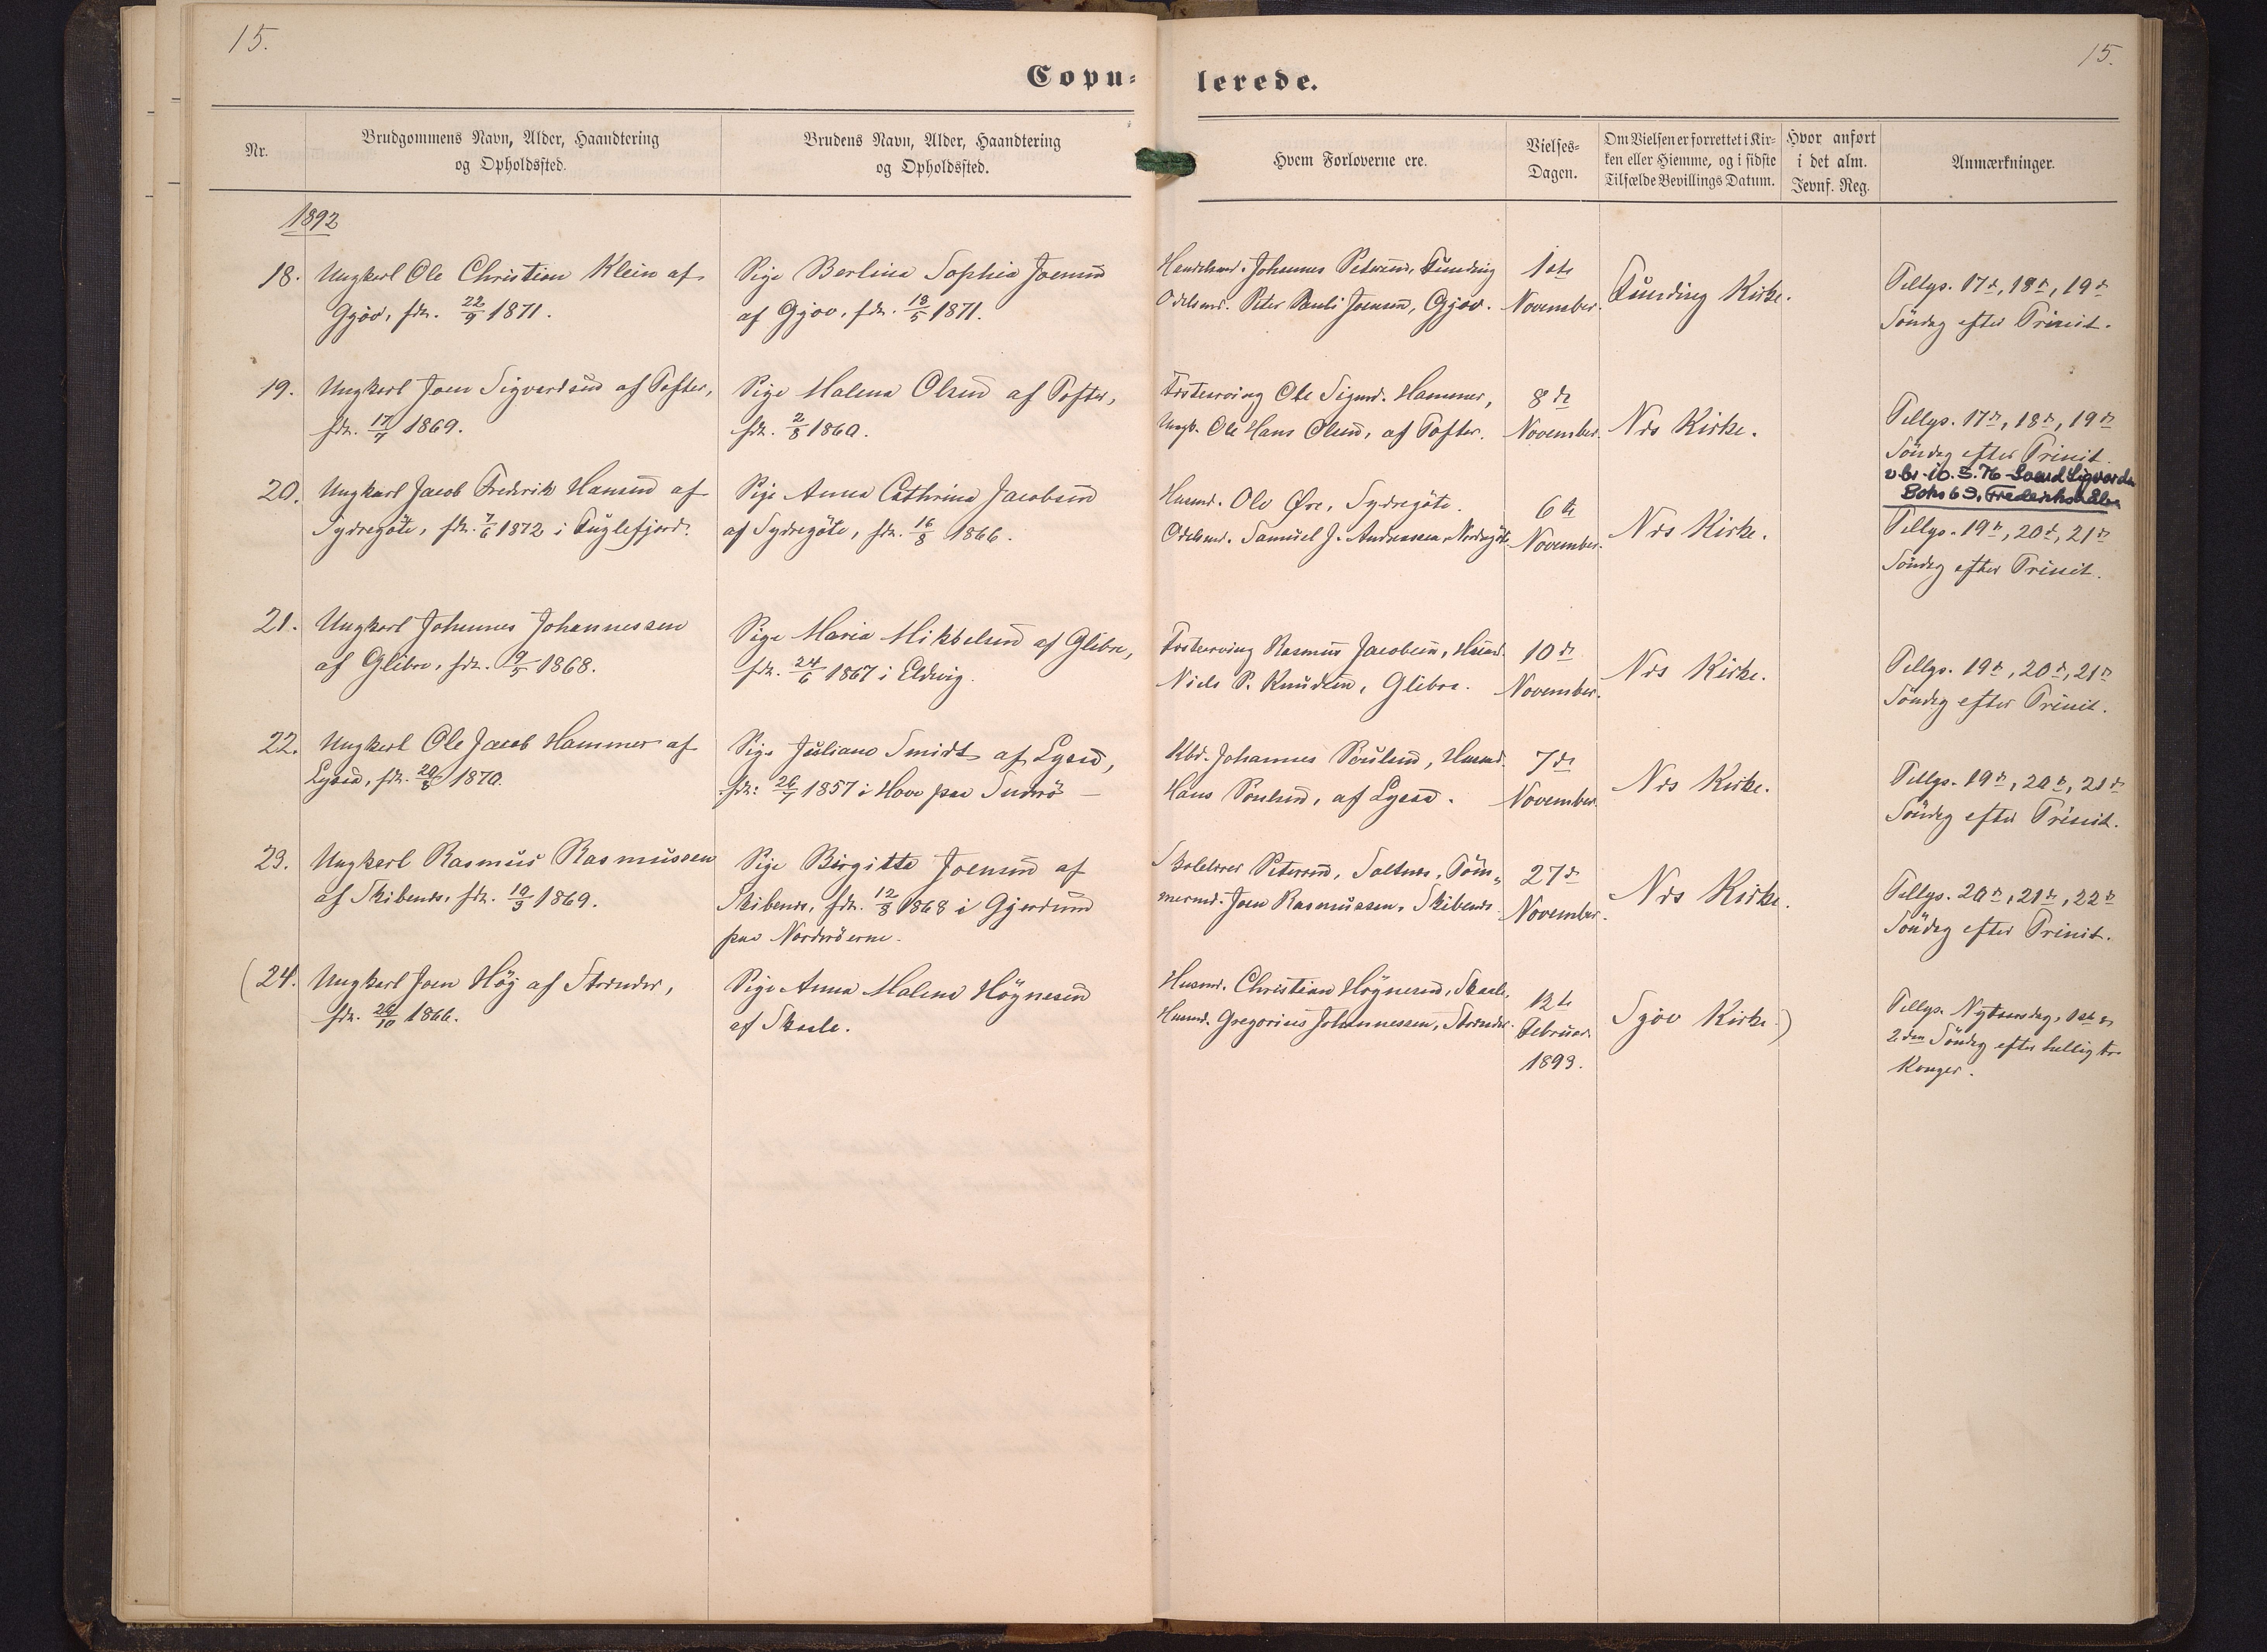 15.
15.
Copu-
lerede.
Nr.
Brudgommens Navn, Alder, Haandtering
og Opholdssted.
Brudens Navn, Alder, Haandtering
og Opholdssted.
Hvem Forloverne ere.
Vielses-
Dagen.
Om Vielsen er forrettet i Kir-
ken eller Hiemme, og i sidste
Tilfælde Bevillings Datum.
Hvor anført
i det alm.
Jevnf. Reg.
Anmærkninger.
1892
18.
Ungkarl Ole Christian Klein af
Gjov, fdt. 22/9 1871.
Pige Berlina Sophia Joensen
af Gjov, fdt. 18/5 1871.
Johannes Petersen, Funding
Odelsmd. Peter Pauli Joensen, Gjov.
1ste
November.
Funding Kirke.
Tillys. 17d, 18d, 19d
Söndag efter Trinit.
19.
Ungkarl Joen Sigvardsen af Tofter,
fdt. 17/7 1869.
Pige Malena Olsen af Tofter,
fdt. 2/8 1860.
Ole Sigmd. Hammer,
Ungk. Ole Hans Olsen, af Tofter.
8de
November.
Nds Kirke.
Tillys. 17d, 18d, 19d
Söndag efter Trinit.
20.
Ungkarl Jacob Frederik Hansen af
Sydregöte, fdt. 7/6 1872 i Fuglefjord.
Pige Anna Cathrina Jacobsen
af Sydregöte, fdt. 16/8 1866.
Husmd. Ole Øre, Sydregöte.
Odelsmd. Samuel J. Andreasen, Nordregöte
6te
November.
Nds Kirke.
v.br. 10.5.76
Boks 69, Frederikshåb
Tillys. 19d, 20d, 21d
Söndag efter Trinit.
21.
Ungkarl Johannes Johannessen
af Glibre, fdt. 19/5 1868.
Pige Maria Mikkelsen af Glibre,
fdt. 24/6 1867 i Eldevig.
Rasmus Jacobsen, Husmd.
Niels P. Knudsen, Glibre.
10de
November.
Nds Kirke.
Tillys. 19d, 20d, 21d
Söndag efter Trinit.
22.
Ungkarl Ole Jacob Hammer af
fdt. 20/8 1870.
Pige Juliane Smidt af
fdt: 26/7 1857 i Hove paa Suderö
Kbd. Johannes Poulsen, Husmd.
Hans Poulsen, af
7de
November.
Nds Kirke.
Tillys. 19d, 20d, 21d
Söndag efter Trinit.
23.
Ungkarl Rasmus Rasmussen
af Skibenes, fdt. 10/3 1869.
Pige Birgitta Joensen af
Skibenes, fdt. 12/8 1868 i Gjerdum
paa Norderöerne.
Skolelærer Petersen, Saltnes, Töm-
mermd. Joen Rasmussen, Skibenes
27de
November.
Nds Kirke.
Tillys. 20d, 21d, 22d
Söndag efter Trinit.
(24.
Ungkarl Joen Höj af Strender,
fdt. 26/10 1866.
Pige Anna Malena Högnesen
af Skaale.
Husmd. Christian Högnesen, Skaale,
Husmd. Gregorius Johannessen, Strender.
12te
Februar
1893.
Sjov Kirke.)
Tillys. Nytaarsdag, 1ste &
2den Söndag efter hellig tre
Konger.